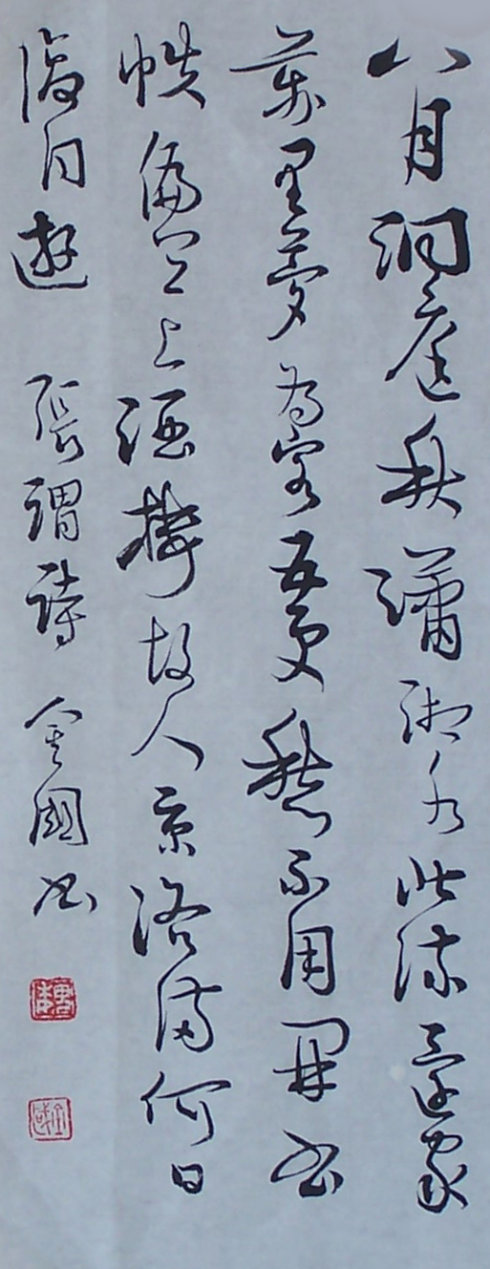 八月洞庭秋瀟湘水北流還家
萬里夢為客五更愁不用開書
帙偏宜上酒樓故人京洛滿何日
復同遊 張謂詩 金國書